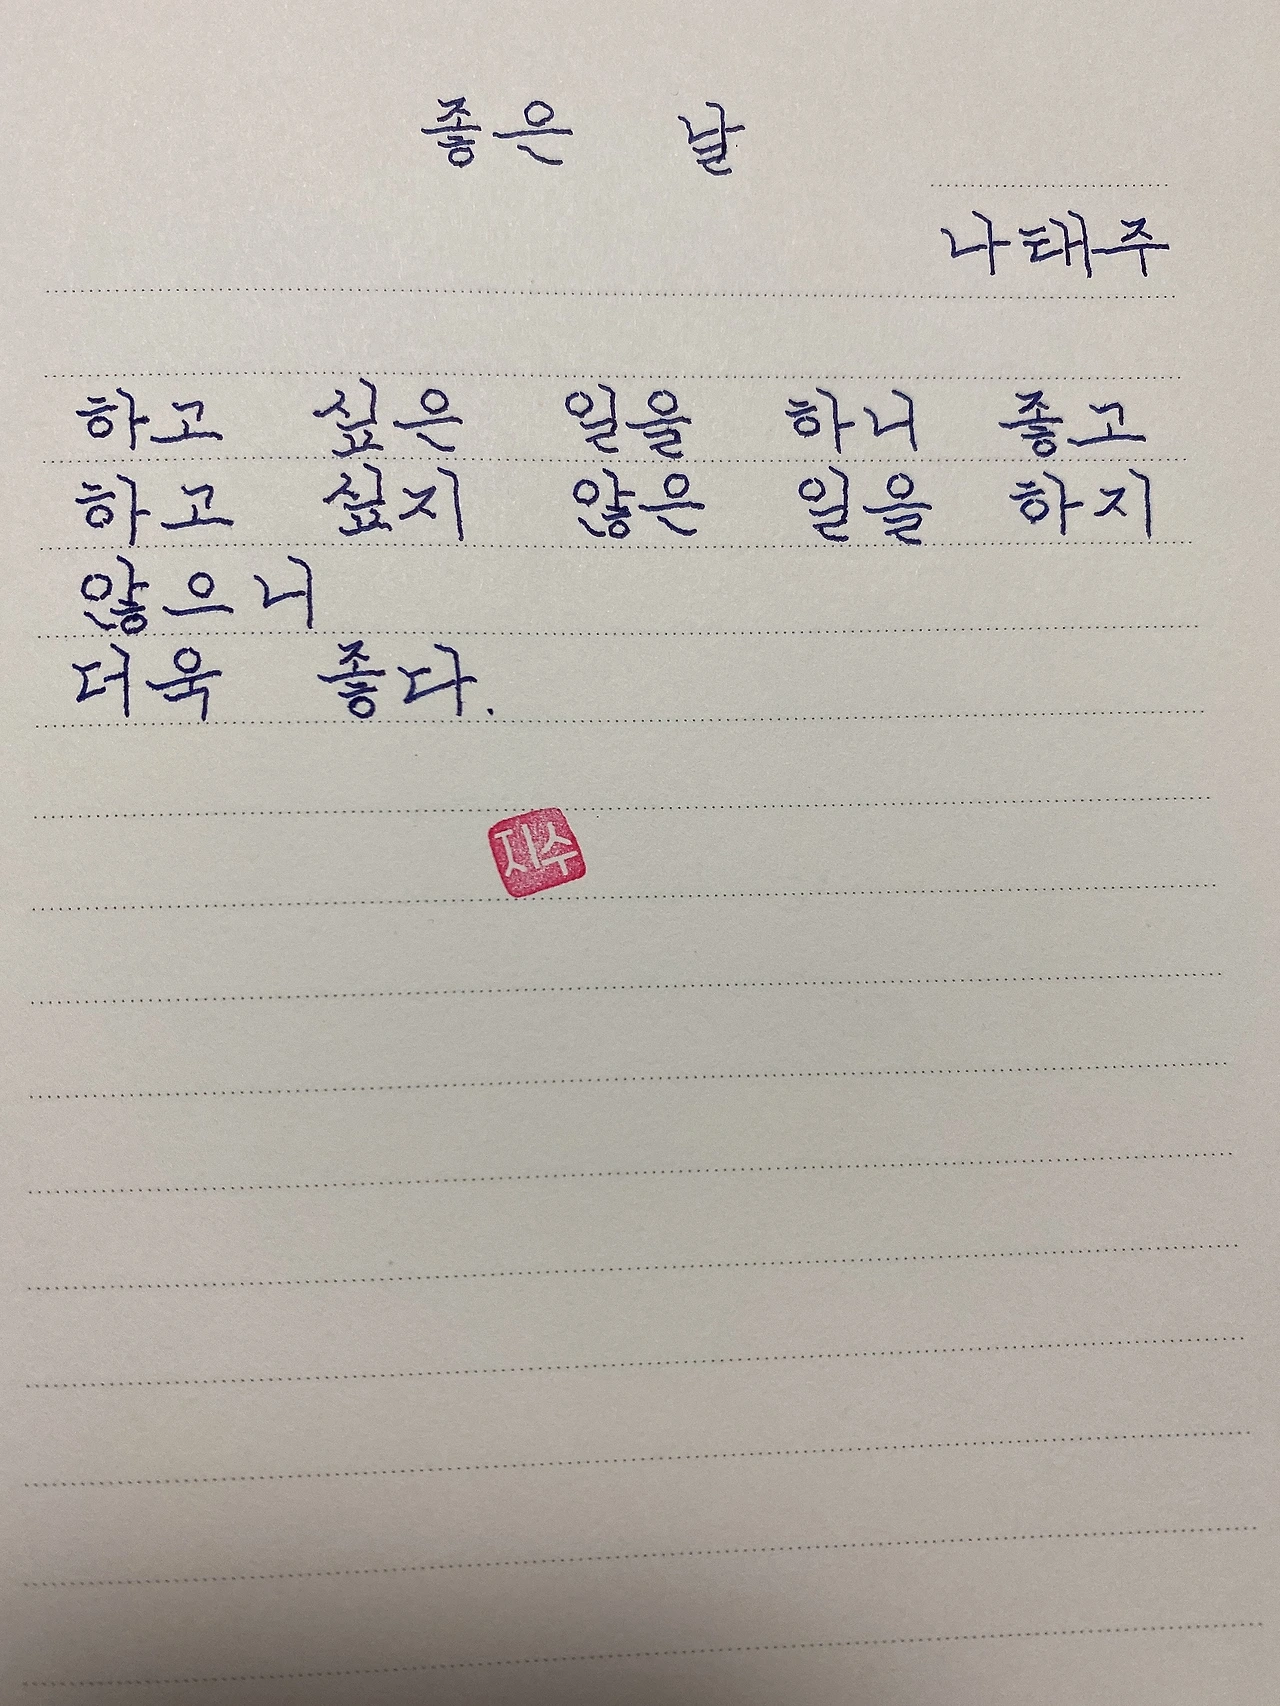 좋은 날
나태주
하고 싶은 일을 하니 좋고
하고 싶지 않은 일을 하지
않으니
더욱 좋다.
지수